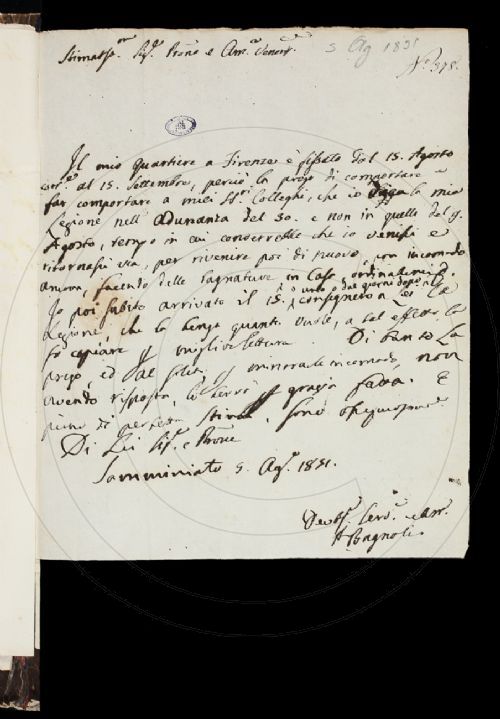 Stimatiss.mo Sig.r Prone e Am.o Venerat.
5 Ag 1831
N.o 378.
Il mio quartiere a Firenze è fissato dal 15. Agosto
al 15. Settembre, perciò la prego di comportare e
far comportare a miei SS.ri Colleghi, che io legga la mia
Lezione nell'Adunanza del 30. e non in quella del 9.
Agosto, tempo in cui converrebbe che io venissi e
ritornassi via, per rivenire poi di nuovo, con incomodo
ancora, facendo delle
Io poi subito arrivato il 15. o uno o due giorni dopo consegnerò a Lei la
Lezione, che la tenga quanto vuole, a tal effetto la
fo copiare p miglior lettura. Di tanto La
prego, ed Ella p minorarle incomodo, non
avendo risposta, la terrò p grazia fatta. E
pieno di perfetta stima, sono
Di Lei Sig.r e Prone
Samminiato 5. Ag.o 1831.
Devot. Serv.e e Am.
P. Bagnoli